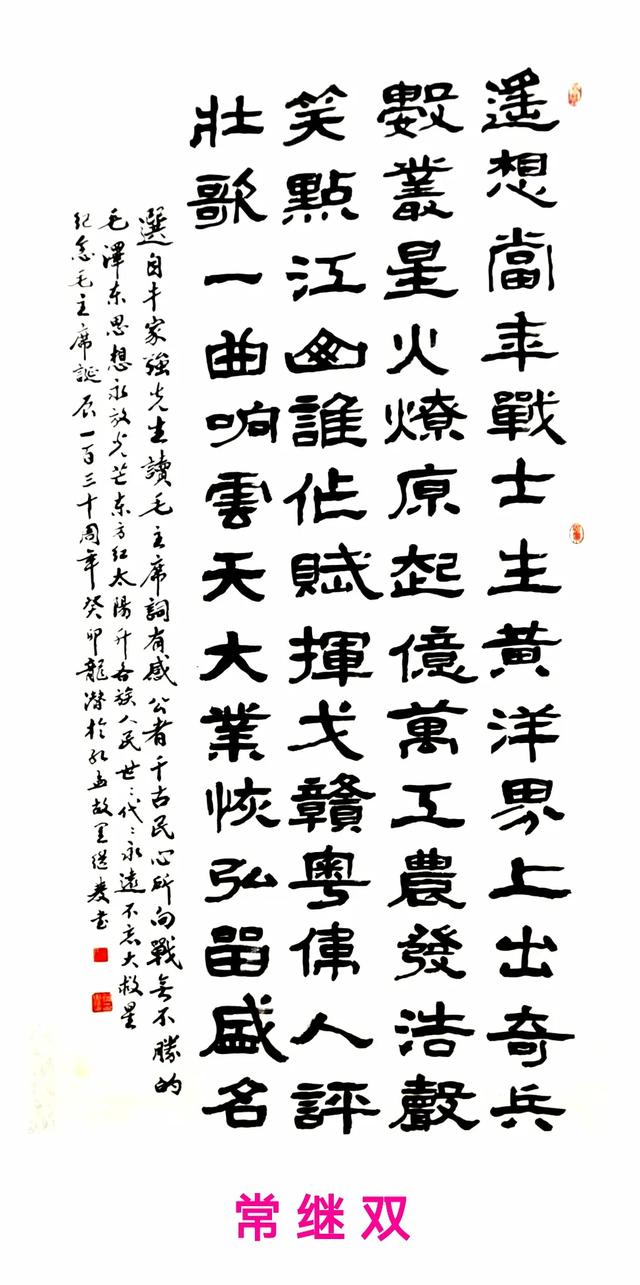 遙想當年戰士生黃洋界上出奇兵
數叢星火燎原起億萬工農發浩聲
笑點江山誰作賦揮戈贛粵偉人評
壯歌一曲响雲天大業恢弘留盛名
選自牛家強先生讀毛主席詞有感公者千古民心所向戰無不勝的
毛澤东思想永放光芒东方红太陽升各族人民世〻代〻永遠不忘大救星
纪念毛主席誕辰一百三十周年癸卯龍潜於孔孟故里继雙书
常继双